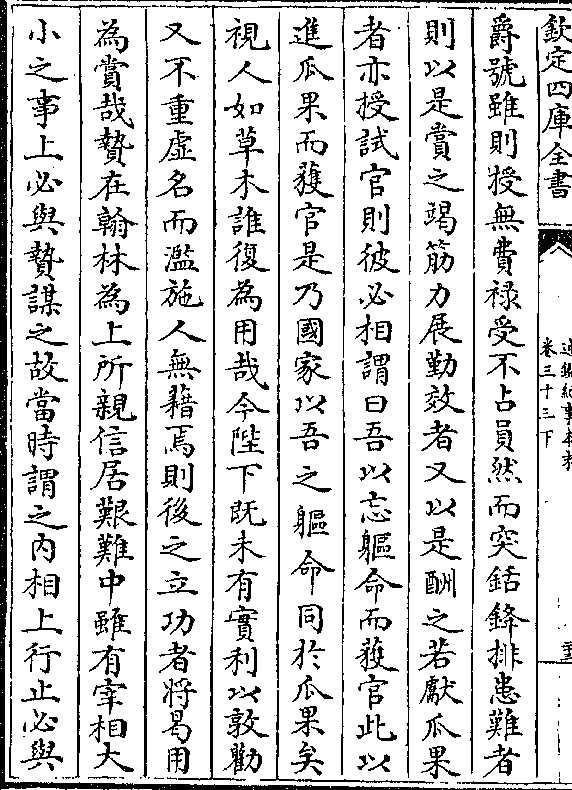 欽定四庫全書
通鑑紀事本末
卷三十三下
爵號雖則授無費禄受不占員然而突銛鋒排患難者
則以是賞之竭筋力展勤效者又以是酬之若獻瓜果
者亦授試官則彼必相謂曰吾以忘軀命而獲官此以
進瓜果而獲官是乃國家以吾之軀命同於瓜果矣
視人如草木誰復為用哉今陛下既未有實利以敦勸
又不重虛名而濫施人無藉焉則後之立功者將曷用
為賞哉贄在翰林為上所親信居艱難中雖有宰相大
小之事上必與贄謀之故當時謂之内相上行止必與